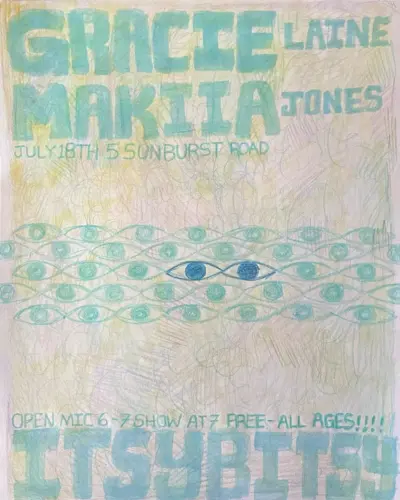 GRACIE LAINE
MAKIIA JONES
JULY 18TH 5 SUNBURST ROAD
OPEN MIC 6-7 SHOW AT 7 FREE-ALL AGES!!!!
ITSYBITSY